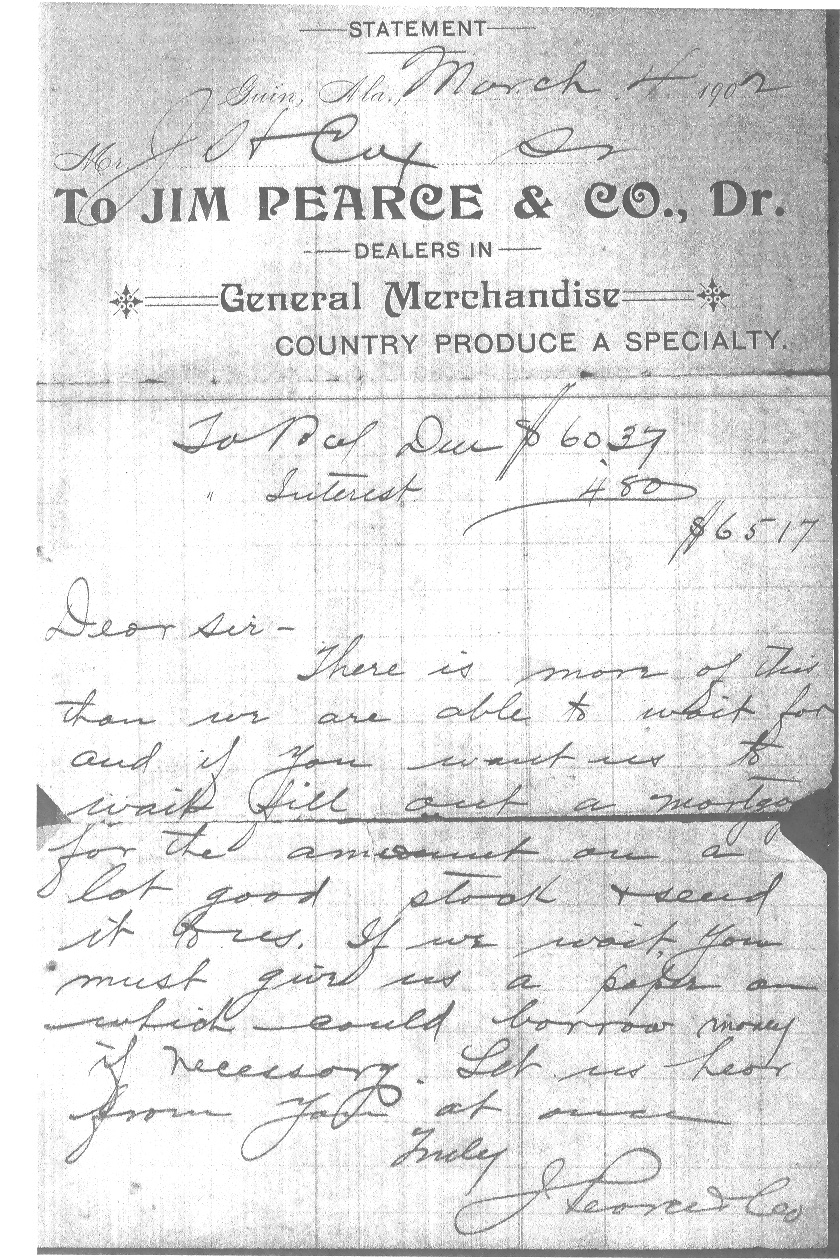 STATEMENT
Guin, Ala., March 4 1902
Mr J H Cox Sr
To JIM PEARCE & CO., Dr.
DEALERS IN
General Merchandise
COUNTRY PRODUCE A SPECIALTY.
To Bal Due $ 60.37
" Interest 4.80
$65 17
Dear sir -
There is more of this
than we are able to wait for
and if you want us to
wait fill out a mortgg
for the amount on a
lot good stock & send
it to us. If we wait you
must give us a paper on
which could borrow money
if necessary. Let us hear
from you at once
Truly
J Pearce & Co